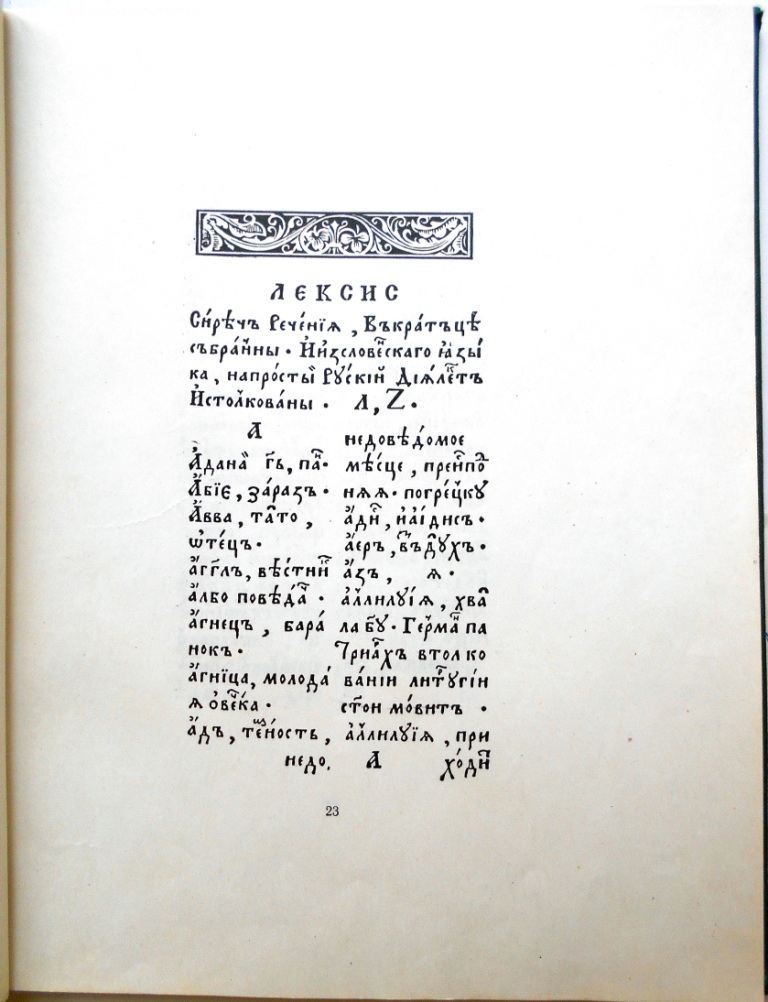 ЛЕКСИС
Си́рѣчь Рече́нїѧ , Въкра́тъцѣ
събра́нны · И҆изслове́нскаго ꙗ҆зы́
ка , напро́сты Рꙋ́скїй Дїѧ́ле́тъ
И҆столкова́ны · Л, Z ·
А
А҆дана гь҃, па ·
А҆бїє , за́разъ ·
А҆вва , та́то ,
ѡ҆те́цъ ·
а҆гг҃лъ , вѣ́стни
а҆лбо повѣда́ ·
а҆́гнецъ , бара́
нокъ ·
а҆́гнїца , молода́
ѧ ове́чка ·
а҆́дъ , те́мность ,
недо .
недовѣ́домое
мѣ́сце , преи҆спо́
нѧѧ · погре́цкꙋ
а҆́ди , и҆а҆́їдись ·
а҆́еръ , въ́дꙋхъ ·
а҆́зъ , ѧ ·
а҆ллилꙋ́їѧ , хва
ла бг҃ꙋ · Ге́рма па
Трїа́хъ втолко
ва́нїи литꙋргі́и
ст҃ои мо́витъ ·
а҆ллилꙋ́їѧ , при
А хо́ди
23